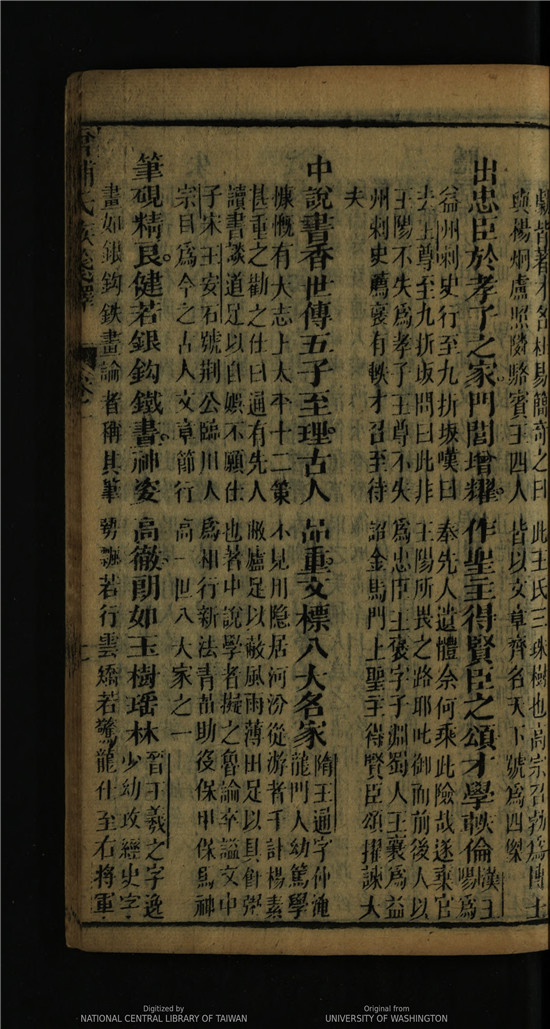 勮皆著才名杜易簡奇之曰此王氏三珠樹也高宗召勃為博士
與楊炯盧照隣駱賓王四人皆以文章齊名天下號為四傑
出忠臣於孝子之家門閭增耀作聖主得賢臣之頌才學軼倫漢王
陽為
益州刺史行至九折坂嘆曰奉先人遺體余何乘此險哉遂棄官
去王尊至九折坂問曰此非王陽所畏之路耶叱御而前後人以
王陽不失為孝子王尊不失為忠臣王褒字子淵蜀人王襄為益
州刺史薦褒有軼才召至待詔金馬門上聖主得賢臣頌擢諫大
夫
中說書香世傳五子至理古人品重文標八大名家隋王通字仲淹
龍門人幼篤學
慷慨有大志上太平十二策不見用隱居河汾從游者千計楊素
甚重之勸之仕曰通有先人敝廬足以蔽風雨薄田足以具饘粥
讀書談道足以自娛不願仕也著中說學者擬之魯論卒謚文中
子宋王安石號荊公臨川人為相行新法青苗助役保甲保馬神
宗目為今之古人文章節行高一世八大家之一
筆硯精良健若銀鈎鐵畫神姿高徹朗如玉樹瑤林晉王羲之字逸
少幼攻經史字
畫如銀鈎鐵畫論者稱其筆勢飄若行雲矯若驚龍仕至右將軍
增補氏族箋釋 卷一 七
Digitized by
NATIONAL CENTRAL LIBRARY OF TAIWAN
Original from
UNIVERSITY OF WASHINGTON